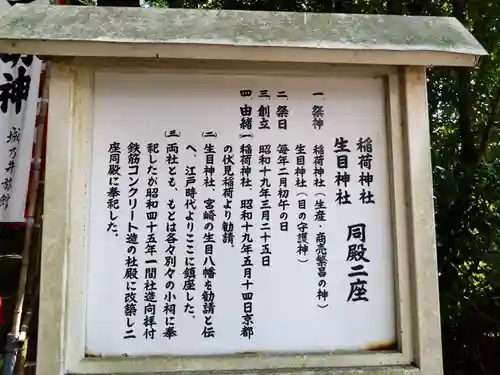 稲荷神社
生目神社
同殿二座
一、祭神 稲荷神社(生産・商売繁昌の神)
生目神社(目の守護神)
二、祭日 毎年二月初午の日
三、創立 昭和十九年三月二十五日
四、由緒(一)稲荷神社、昭和十九年五月十四日京都
の伏見稲荷より勧請。
(二)生目神社、宮崎の生目八幡を勧請と伝
へ、江戸時代よりここに鎮座した。
(三)両社とも、もとは各々別々の小祠に奉
祀したが昭和四十五年一間社造向拝付
鉄筋コンクリート造の社殿に改築し二
座同殿に奉祀した。
神
城乃井旅館